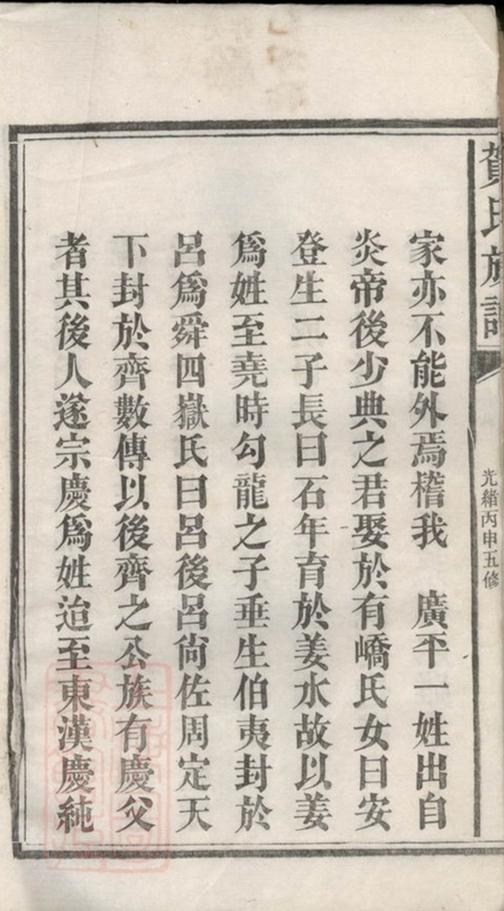 賀氏族譜
光緒丙申五修
家亦不能外焉稽我　廣平一姓出自
炎帝後少典之君娶於有嶠氏女曰安
登生二子長曰石年育於姜水故以姜
爲姓至堯時勾龍之子垂生伯夷封於
呂爲舜四嶽氏曰呂後呂尙佐周定天
下封於齊數傳以後齊之公族有慶父
者其後人遂宗慶爲姓迨至東漢慶純